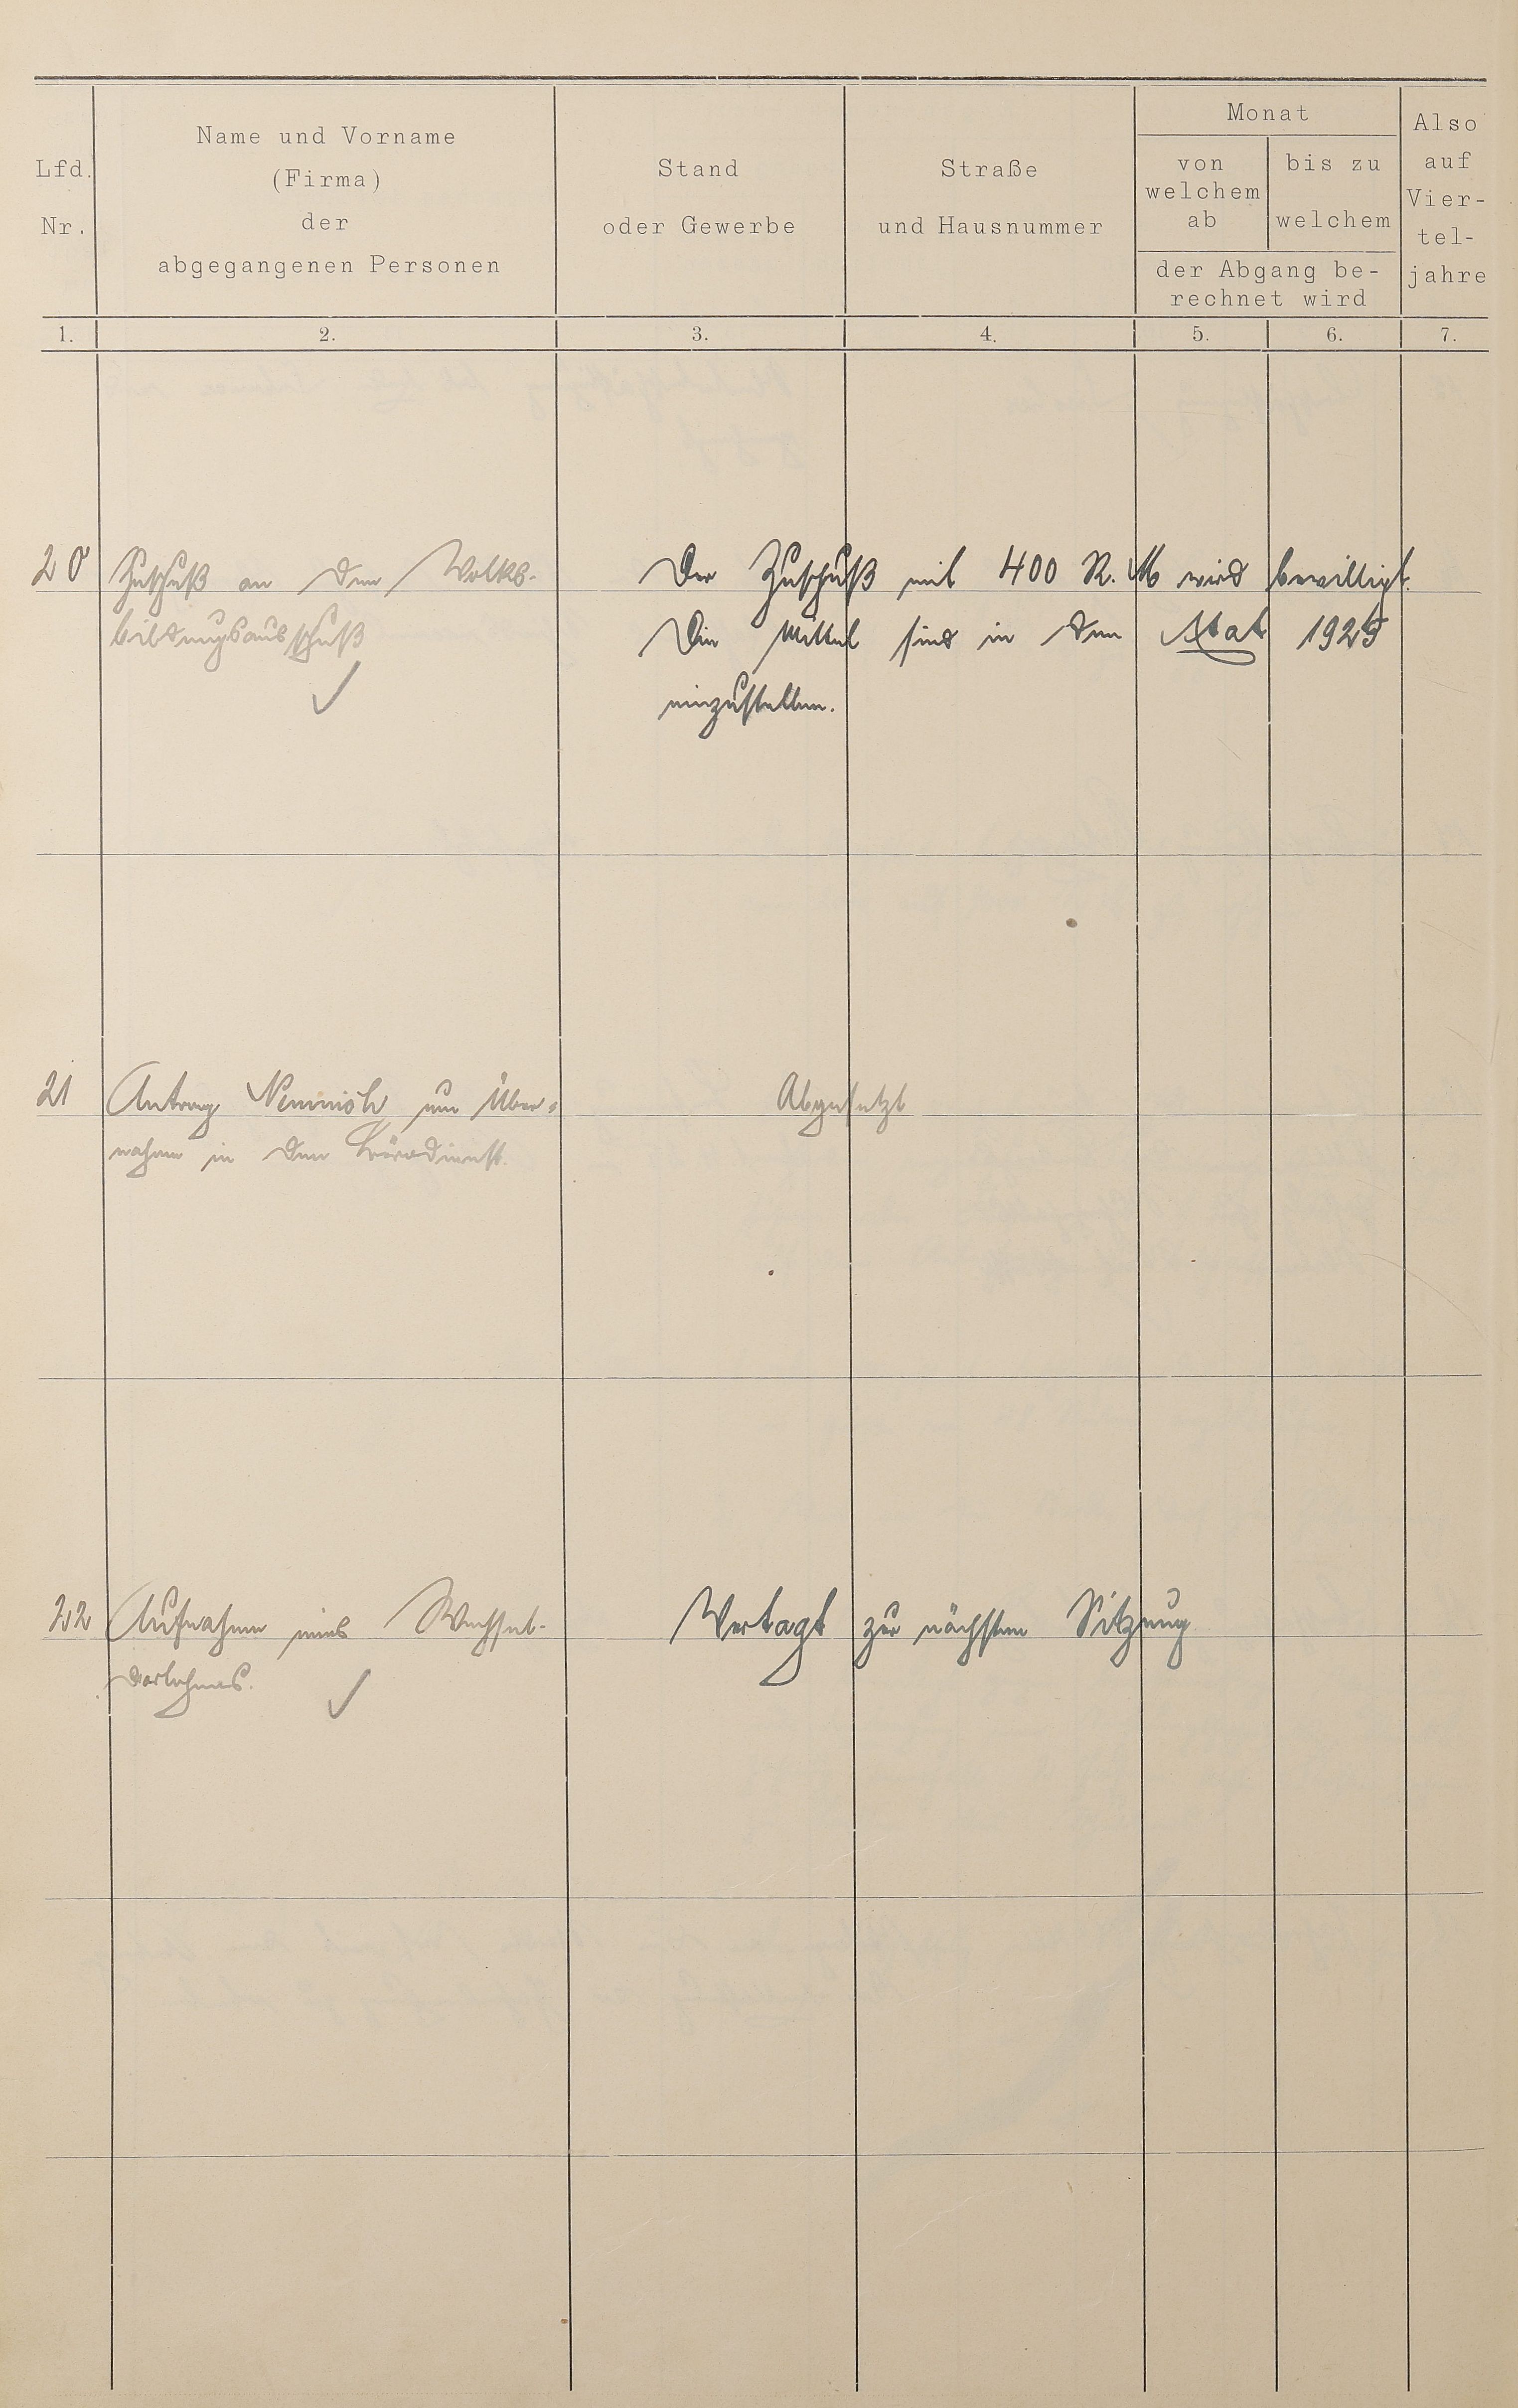 Lfd. Nr.
Name und Vorname
(Firma)
der
abgegangenen Personen
Stand
oder Gewerbe
Straße
und Hausnummer
Monat
von
welchem
ab
bis zu
welchem
der Abgang be-
rechnet wird
Also
auf
Vier-
tel-
jahre
1. 2. 3. 4. 5. 6. 7.
20 Zuschuß an den Volks- Der Zuschuß mit 400 R. M wird bewilligt.
bildungsausschuß Die Mittel sind in den Etat 1925
einzustellen.
21 Antrag Nemnich um Über- Abgesetzt
nahme in den Bürodienst.
22 Aufnahme eines Wechsel- Vertagt zur nächsten Sitzung
darlehens.